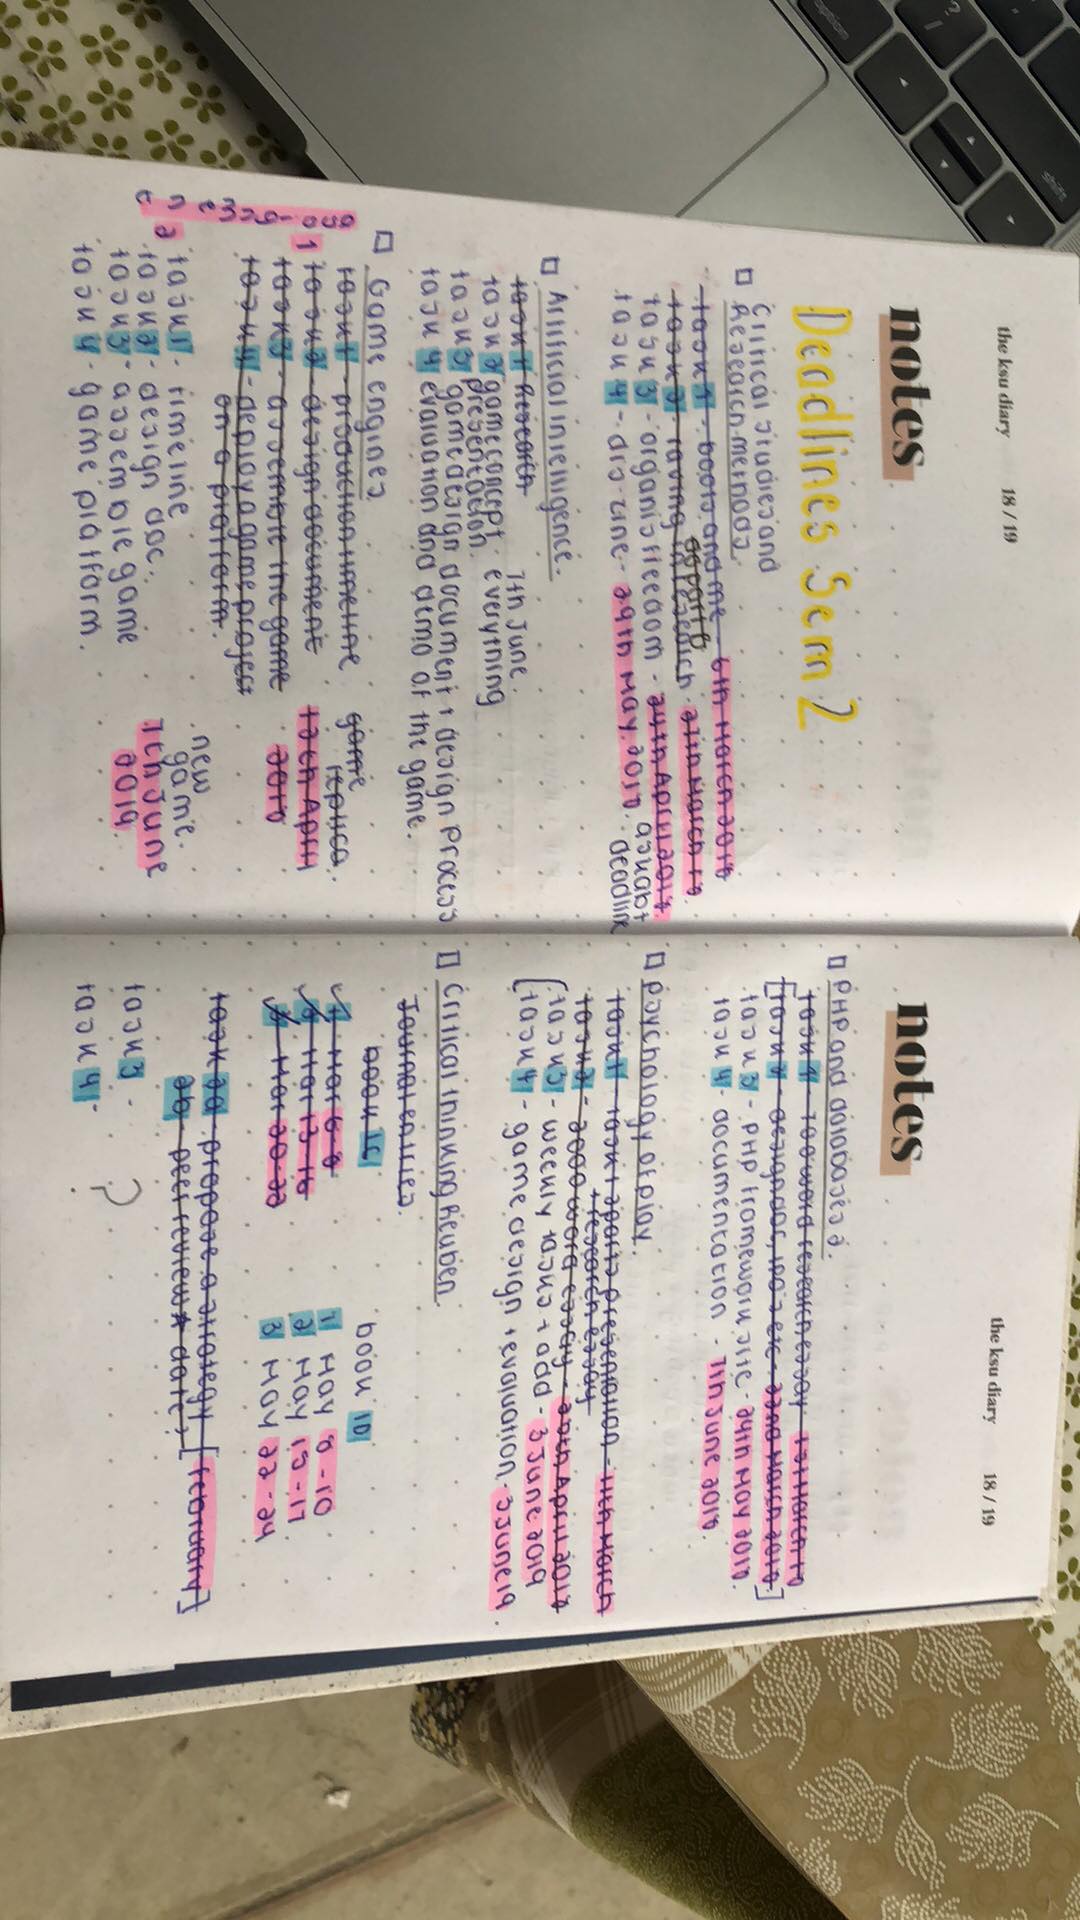 the ksu diary 18 / 19
notes
Deadlines Sem 2
Critical studies and
Research methods
task 1 - boots and me - 6th March 2019
task 2 - raving in research - 27th March 19
task 3 - organis freedom - 24th April 2019
task 4 - dis-zine - 29th May 2019. ask abt
deadline
Artificial intelligence.
task 1 Research 7th June.
task 2 game concept everything
presentation.
task 3 game design document + design Process
task 4 evaluation and demo of the game.
Game engines
task 1 - production timeline game
replica.
1 task 2 - design document 12th April
task 3 - assemble the game 2019
task 4 - deploy a game project
on a platform.
new
2 task 1 - timeline game.
task 2 - design doc. 7th June
task 3 - assemble game 2019
task 4 - game platform.
the ksu diary 18 / 19
notes
PHP and databases 2.
task 1 - 700 word research essay 1st March 19
[task 2 - design doc, etc - 22nd March 2019]
task 3 - PHP framework site - 24th May 2019.
task 4 - documentation - 7th June 2019.
Psychology of play.
task 1 - task + presentation - 11th March
+ research essay
task 2 - 2000 word essay - 20th April 2019
task 3 - weekly tasks + add - 3 June 2019
task 4 - game design + evaluation - 3 June 19.
Critical thinking Reuben.
Journal entries.
book 1C book 1D
1 Mar 6-8 1 May 8-10
2 Mar 13-16 2 May 15-17
3 Mar 20-22 3 May 22-24
task 2a - propose a strategy [february]
2b - peer review date?
task 3 -
?
task 4 -